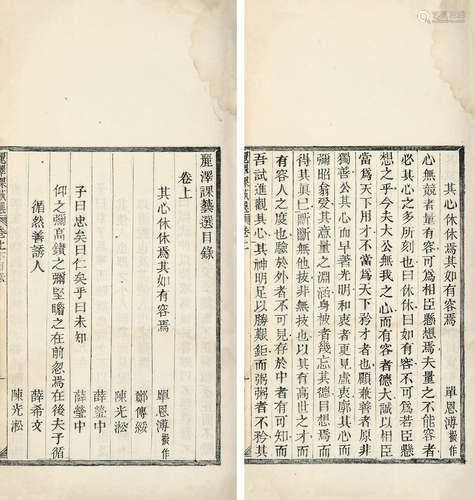 麗澤課藝選目錄
卷上
其心休休焉其如有容焉
單恩溥擬作
鄒傳綏
陳光淞
薛瑩中
子曰忠矣曰仁矣乎曰未知
薛瑩中
仰之彌高鑽之彌堅瞻之在前忽焉在後夫子循
循然善誘人
薛希文
陳光淞
其心休休焉其如有容焉
單恩溥
心無競者量有容可為相臣懸想焉夫量之不能容者
必其心之多所刻也曰休休曰如有容不可為若臣懸
想之乎今夫大公無我之心而有容者德大誠以相臣
當為天下用才不當為天下矜才者也顧兼善者原非
獨善公其心而早著光明和衷者更見虛衷廓其心而
彌昭翁受其意量之淵涵身被者幾忘其德目想而試
得其真已斷斷無他技非無技也以其有高世之才而
有容人之度也驗於外者不可見存於中者有可知而
吾試進觀其心其神明足以勝艱鉅而粥粥者不矜其